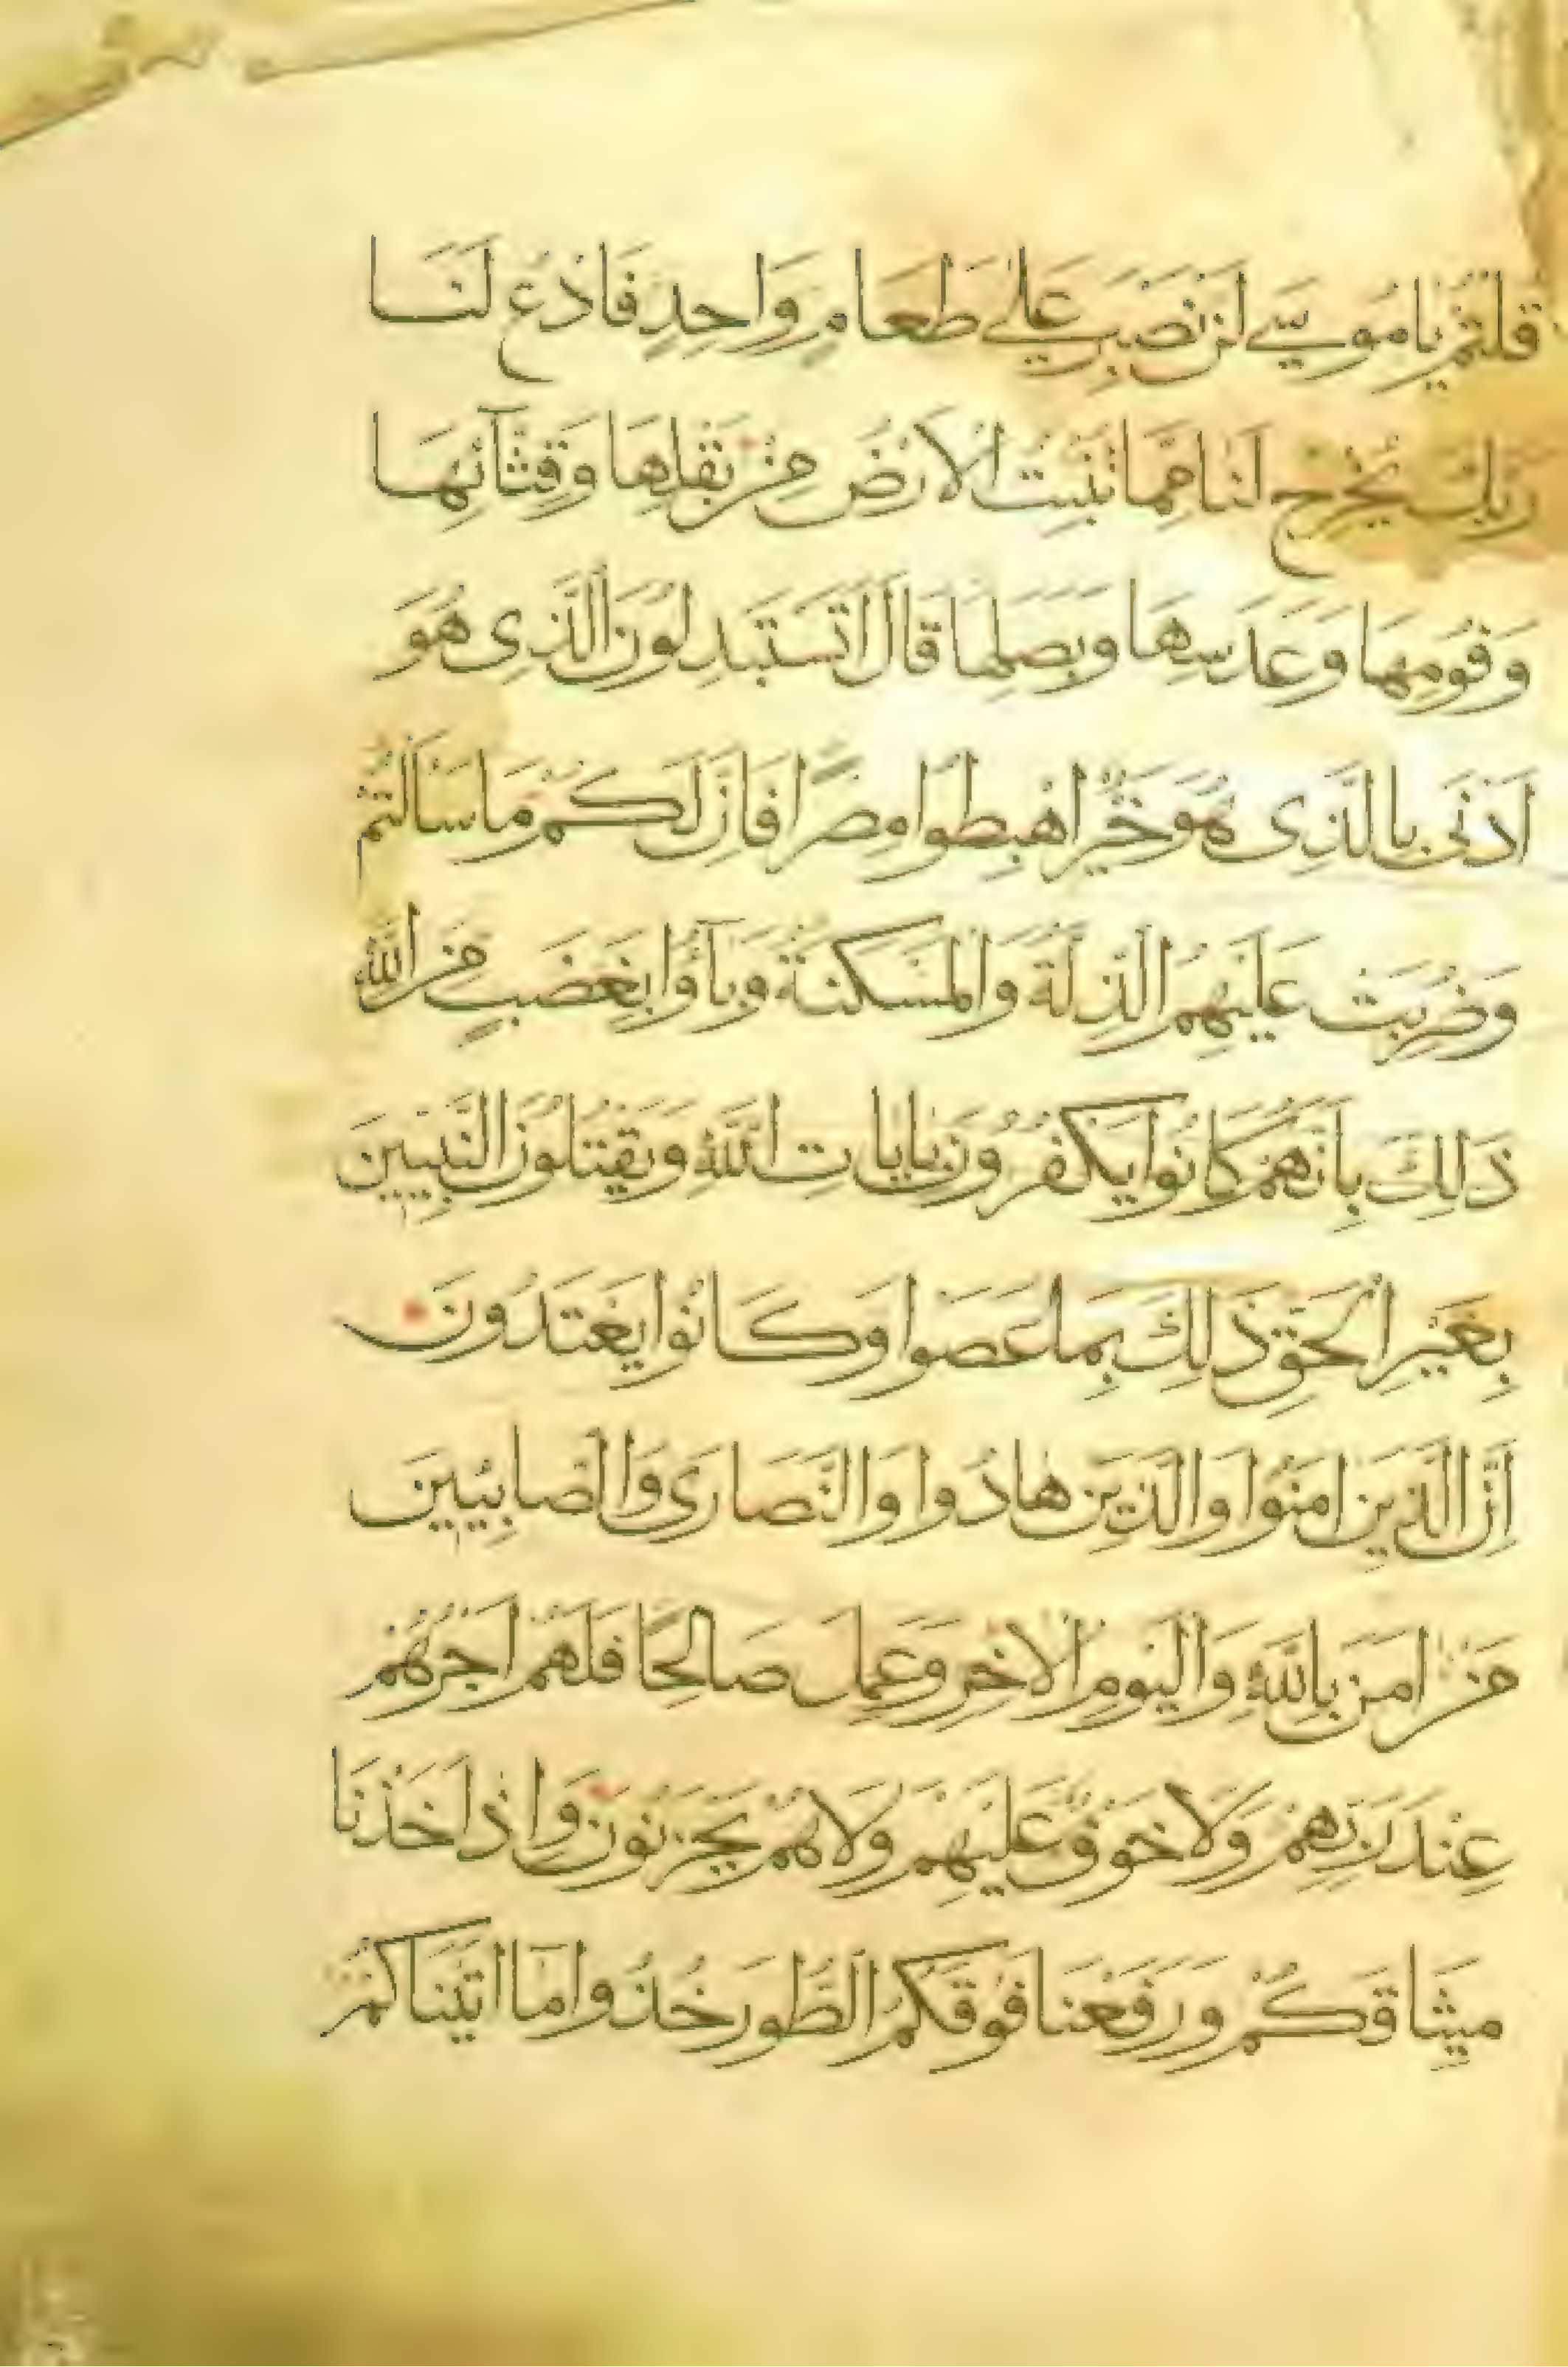 قلتم يا موسى لن نصبر على طعام واحد فادع لنا
ربك يخرج لنا مما تنبت الارض من بقلها وقثائها
وفومها وعدسها وبصلها قال اتستبدلون الذى هو
ادنى بالذى هو خير اهبطوا مصرا فان لكم ما سالتم
وضربت عليهم الذلة والمسكنة وبآؤا بغضب من الله
ذلك بانهم كانوا يكفرون بايات الله ويقتلون النبيين
بغير الحق ذلك بما عصوا وكانوا يعتدون
ان الذين امنوا والذين هادوا والنصارى والصابيين
من امن بالله واليوم الاخر وعمل صالحا فلهم اجرهم
عند ربهم ولا خوف عليهم ولا هم يحزنون واذ اخذنا
ميثاقكم ورفعنا فوقكم الطور خذوا ما اتيناكم